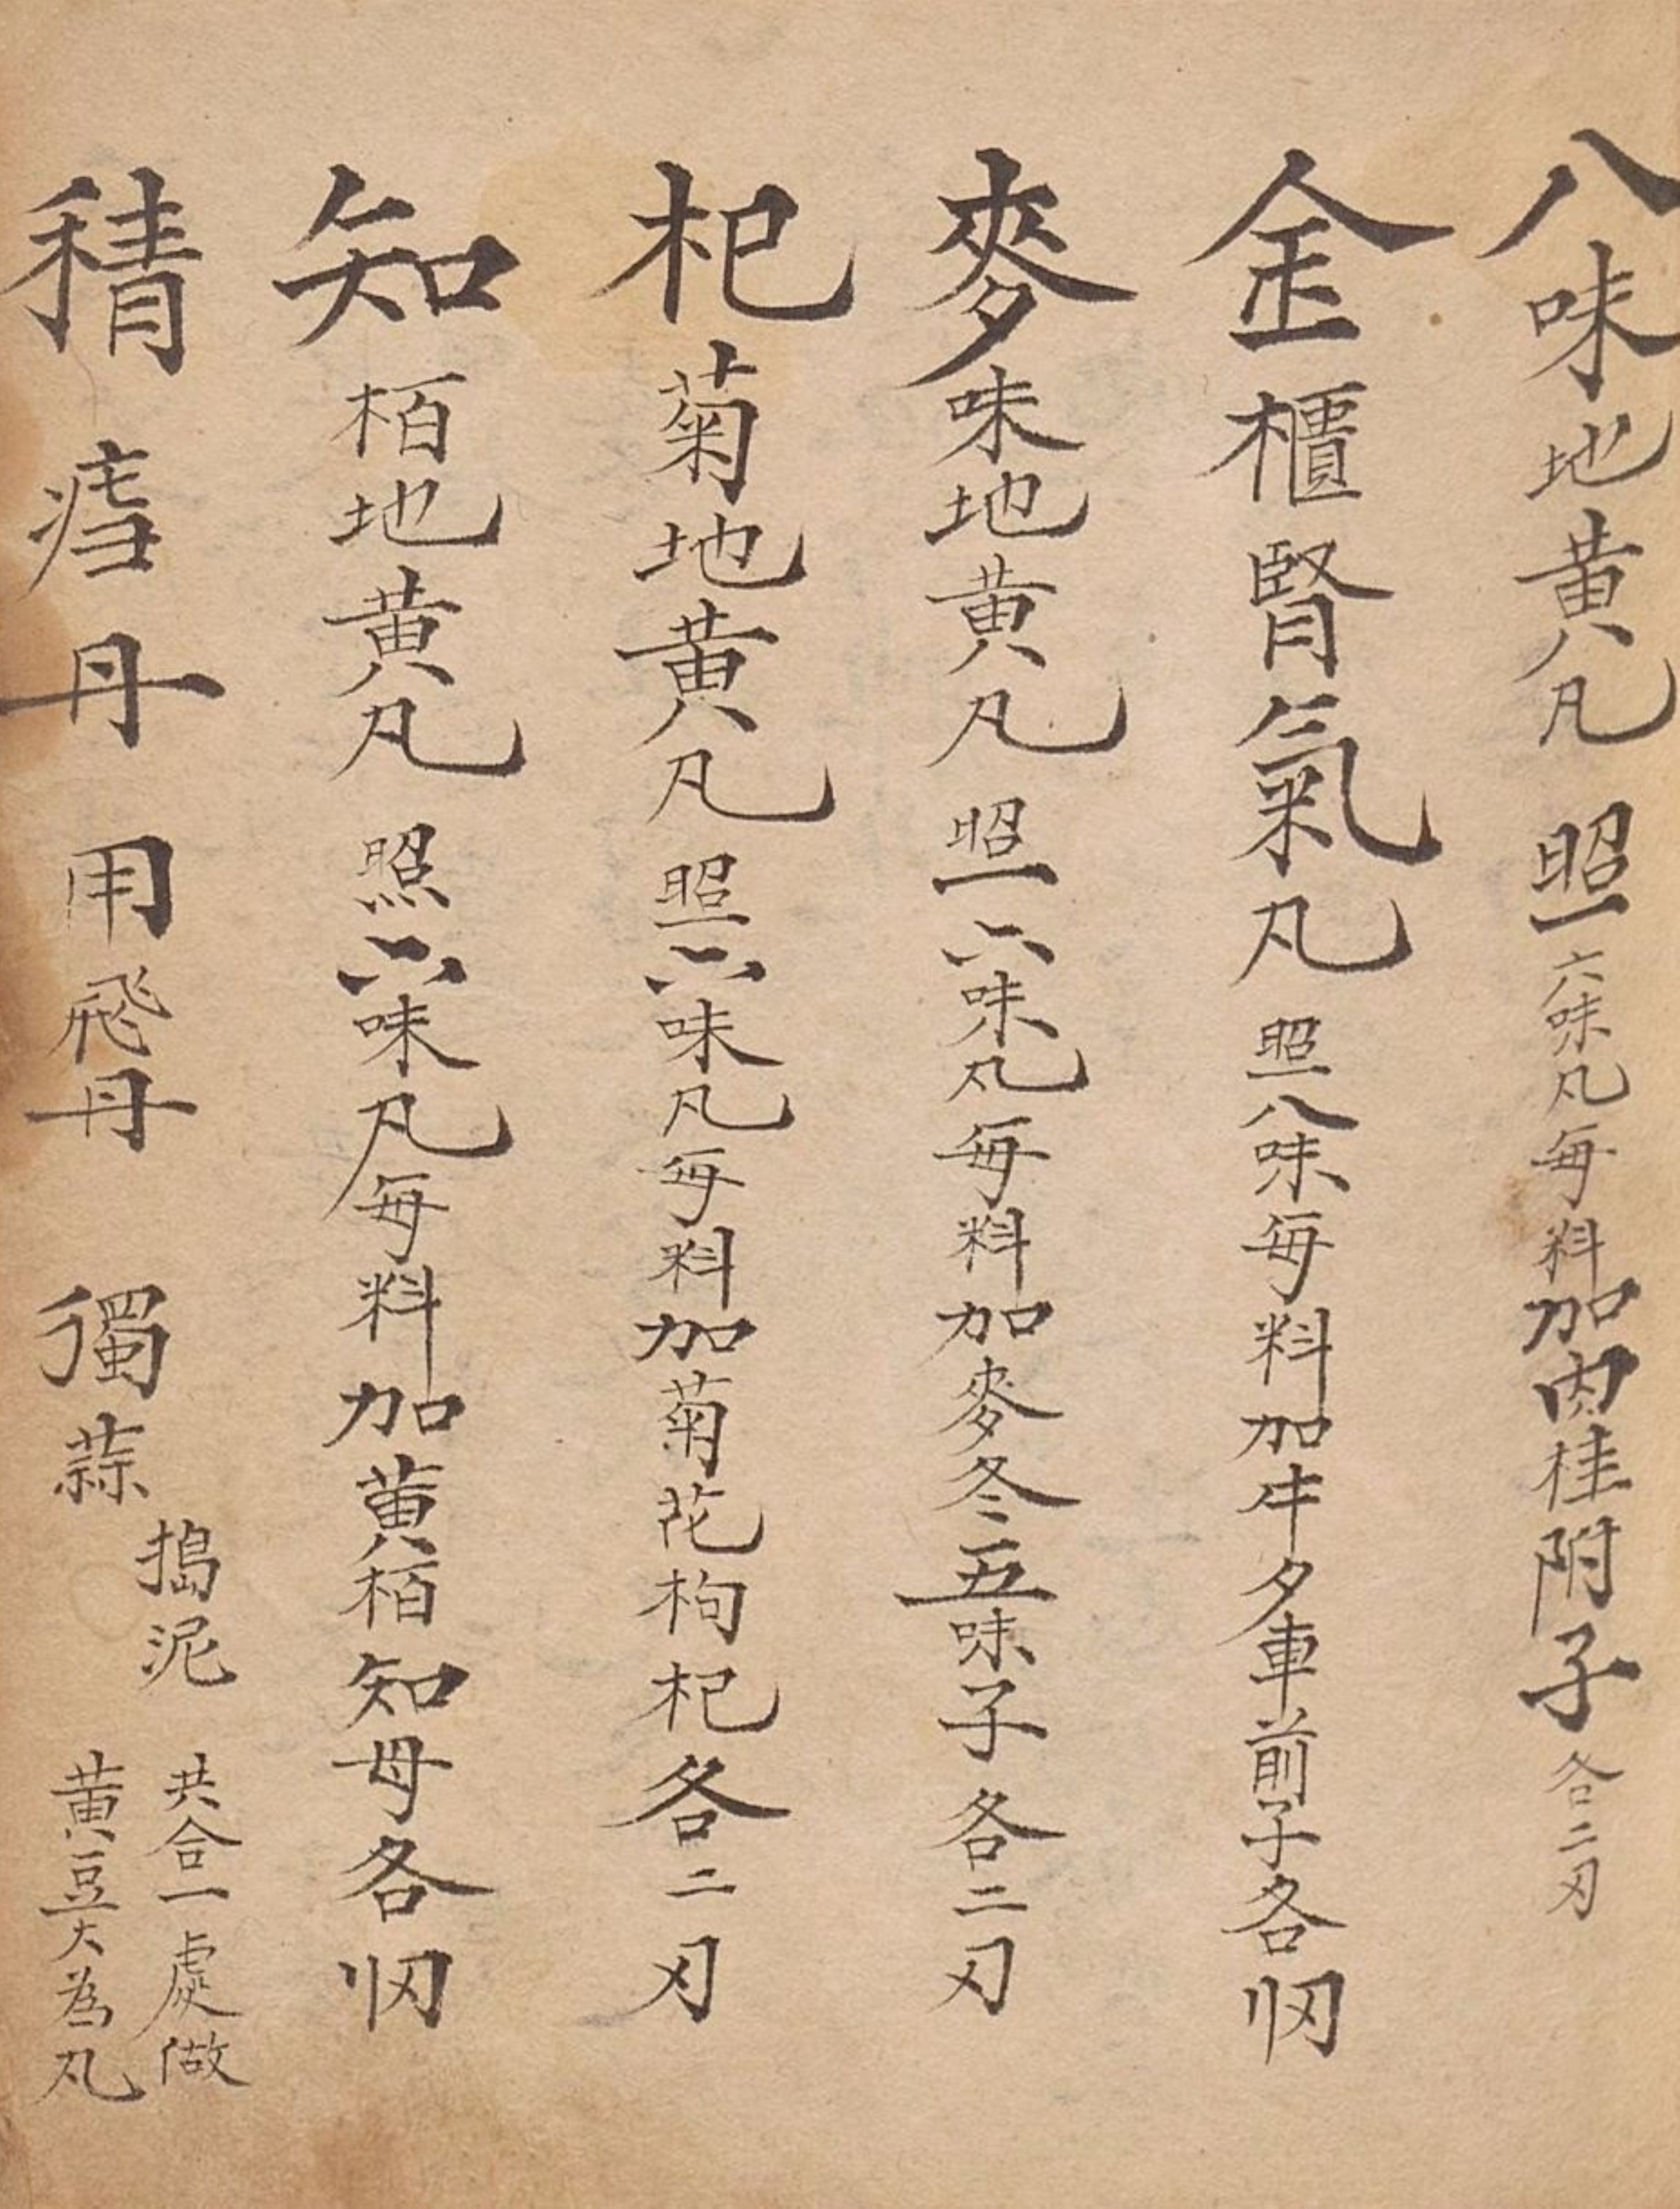 八味地黄凡 照六味凡每料加肉桂附子各二刃
金櫃腎氣凡 照八味每料加牛夕車前子各刃
麥味地黄凡 照六味凡每料加麥冬五味子各二刃
杞菊地黄凡 照六味凡每料加菊花枸杞各二刃
知栢地黄凡 照六味凡每料加黄栢知母各刃
丹 用飛丹 獨蒜
搗泥 共合一處做
黄豆大為凡